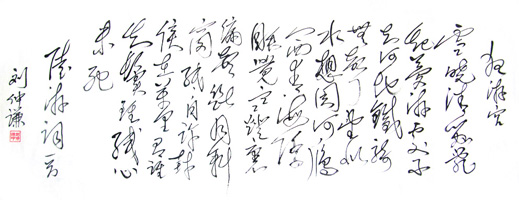 夜游宫
雪晓清笳乱
起梦游处不
知何地铁骑
无声望似
水想关河雁
门西青海际
睡觉寒灯里
漏声断月斜
窗纸自许封
侯在万里有谁
知鬓虽残心
未死
陆游词一首
刘仲谦